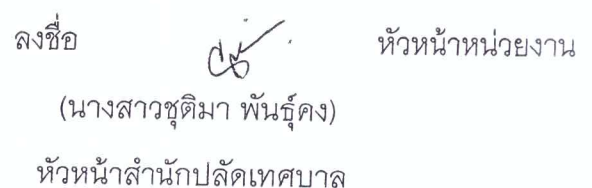 ลงชื่อ หัวหน้าหน่วยงาน
(นางสาวชุติมา พันธุ์คง)
หัวหน้าสำนักปลัดเทศบาล